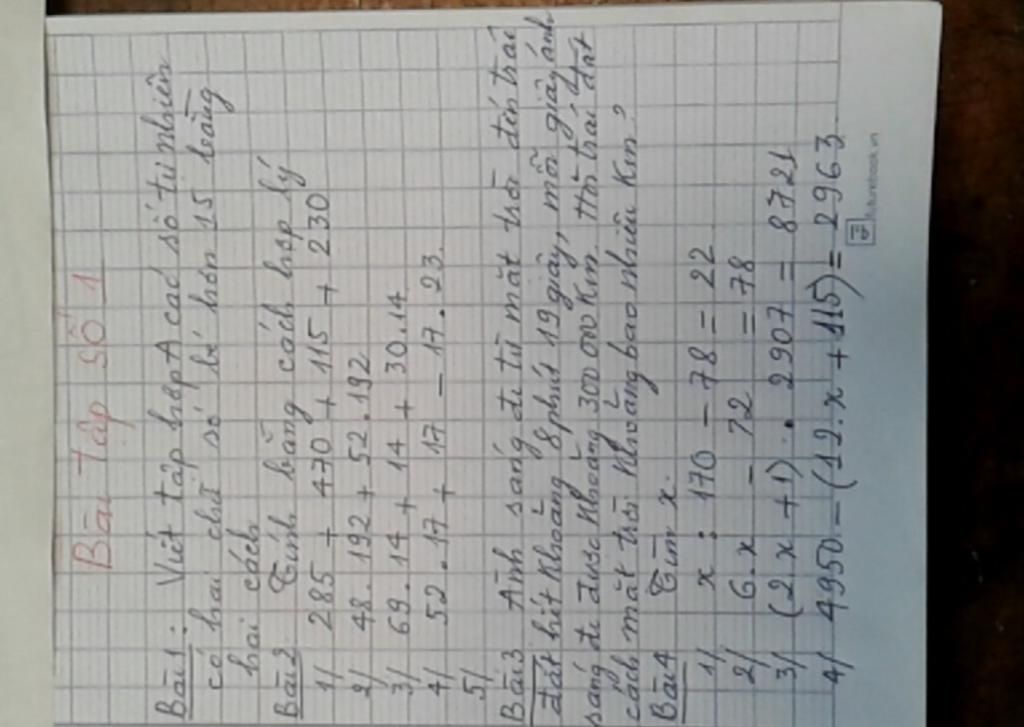 Bài tập số 1
Bài 1: Viết tập hợp A các số tự nhiên
có hai chữ số bé hơn 15 bằng
hai cách
Bài 2 Tính bằng cách hợp lý
1/ 285 + 470 + 115 + 230
2/ 48.192 + 52.192
3/ 69.14 + 14 + 30.14
4/ 52.17 + 17 - 17.23.
5/
Bài 3 Ánh sáng đi từ mặt trời đến trái
đất hết khoảng 8 phút 19 giây, mỗi giây ánh
sáng đi được khoảng 300 000 Km. Hỏi trái đất
cách mặt trời khoảng bao nhiêu Km?
Bài 4 Tìm x.
1/ x : 170 - 78 = 22
2/ 6.x - 72 = 78
3/ (2.x + 1) . 2907 = 8721
4/ 4950 - (12.x + 115) = 2963
futurebook.vn